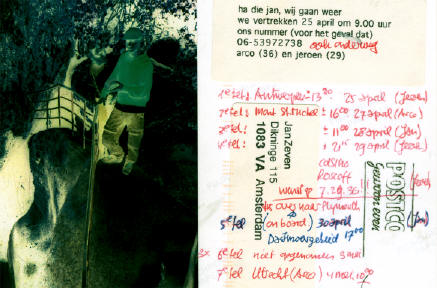 ha die jan, wij gaan weer
we vertrekken 25 april om 9.00 uur
ons nummer (voor het geval dat)
06-53972738 ook onderweg
arco (36) en jeroen (29)
1e tel: Antwerpen 13 00 25 april (Jeroen)
2e tel: Mont St. Michel ± 16 00 27 april (Arco)
3e tel: ± 11 00 28 april (Jan)
4e tel: ± 21 15 29 april (Jeroen)
Jan Zeven
Dikninge 115
1083 VA Amsterdam
Roscoff
7.29.36
naar Plymouth
POSTCO
5e tel (on board) 30 april (Jan)
Dartmoorgebied 17 00
3x 6e tel niet opgenomen 3 mei
7e tel Utrecht (Arco) 4 mei 10 00